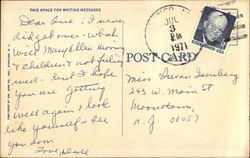 THIS SPACE FOR WRITING MESSAGES
Dear Sue: I never
did get over - what
well Mary Ellen moving
& children's not feeling
well - but I hope
you are getting
well again & look
like yourself - See
you soon
Love
JUL
3
PM
1971
POST CARD
Miss Susan
243 W. Main St
Moorestown,
N. J. 08057